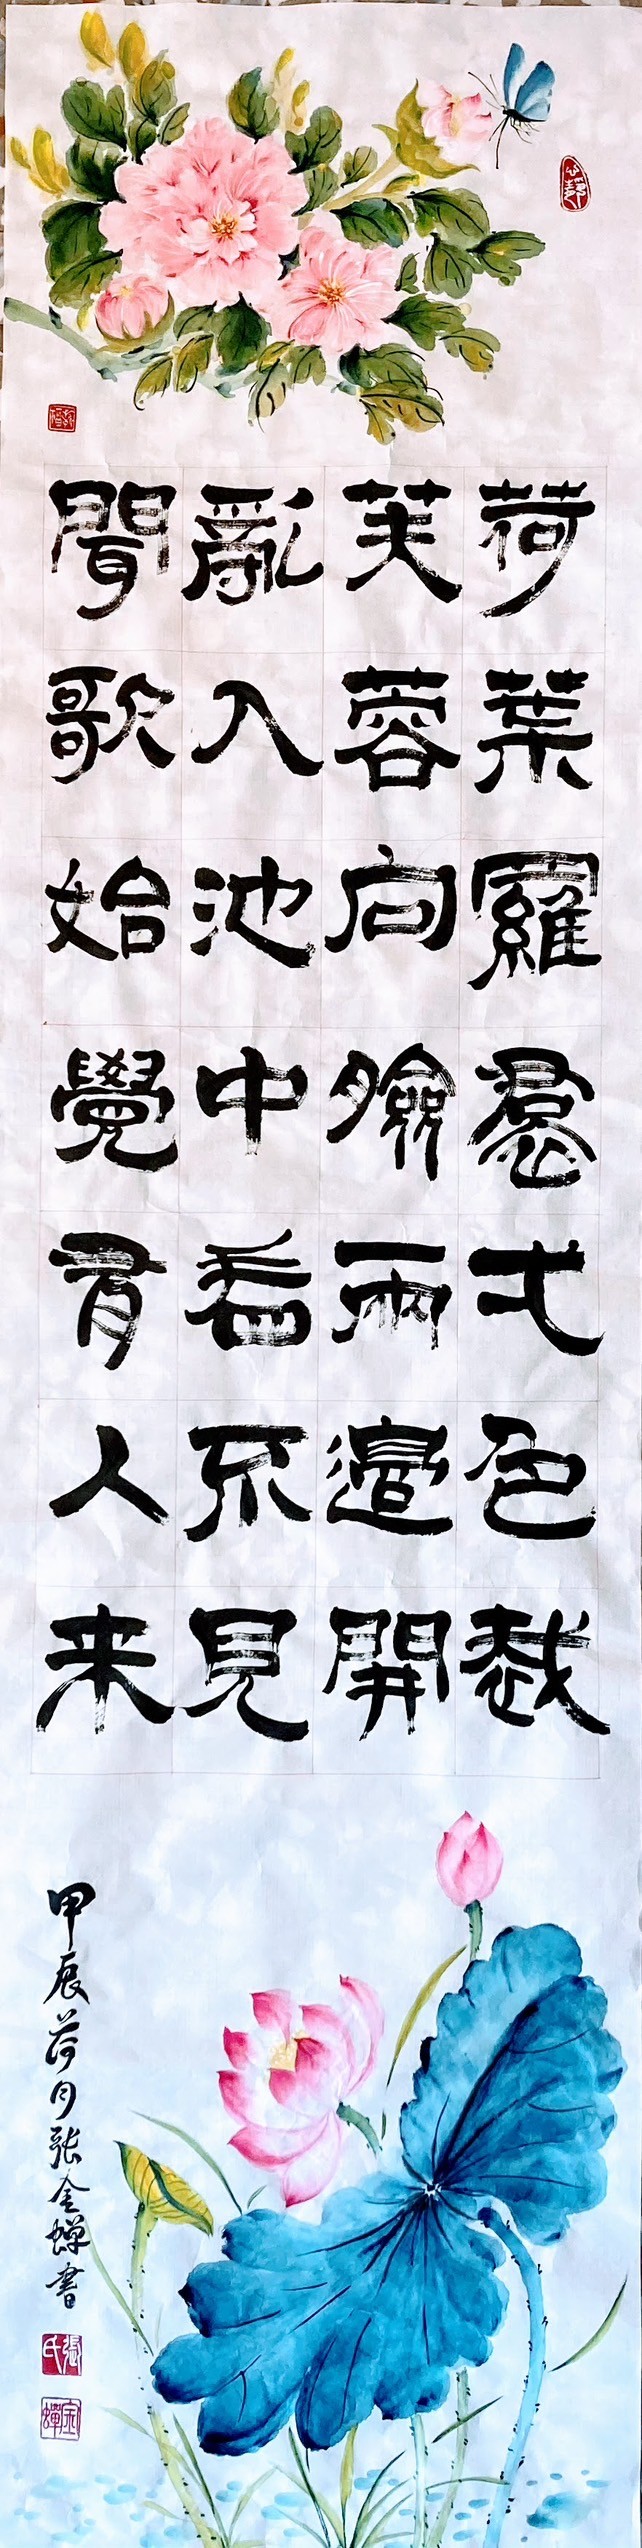 荷葉羅裙弌色裁
芙蓉向臉兩邉開
亂入池中看不見
聞歌始覺有人来
甲辰荷月張金蟬書
張氏
金蟬